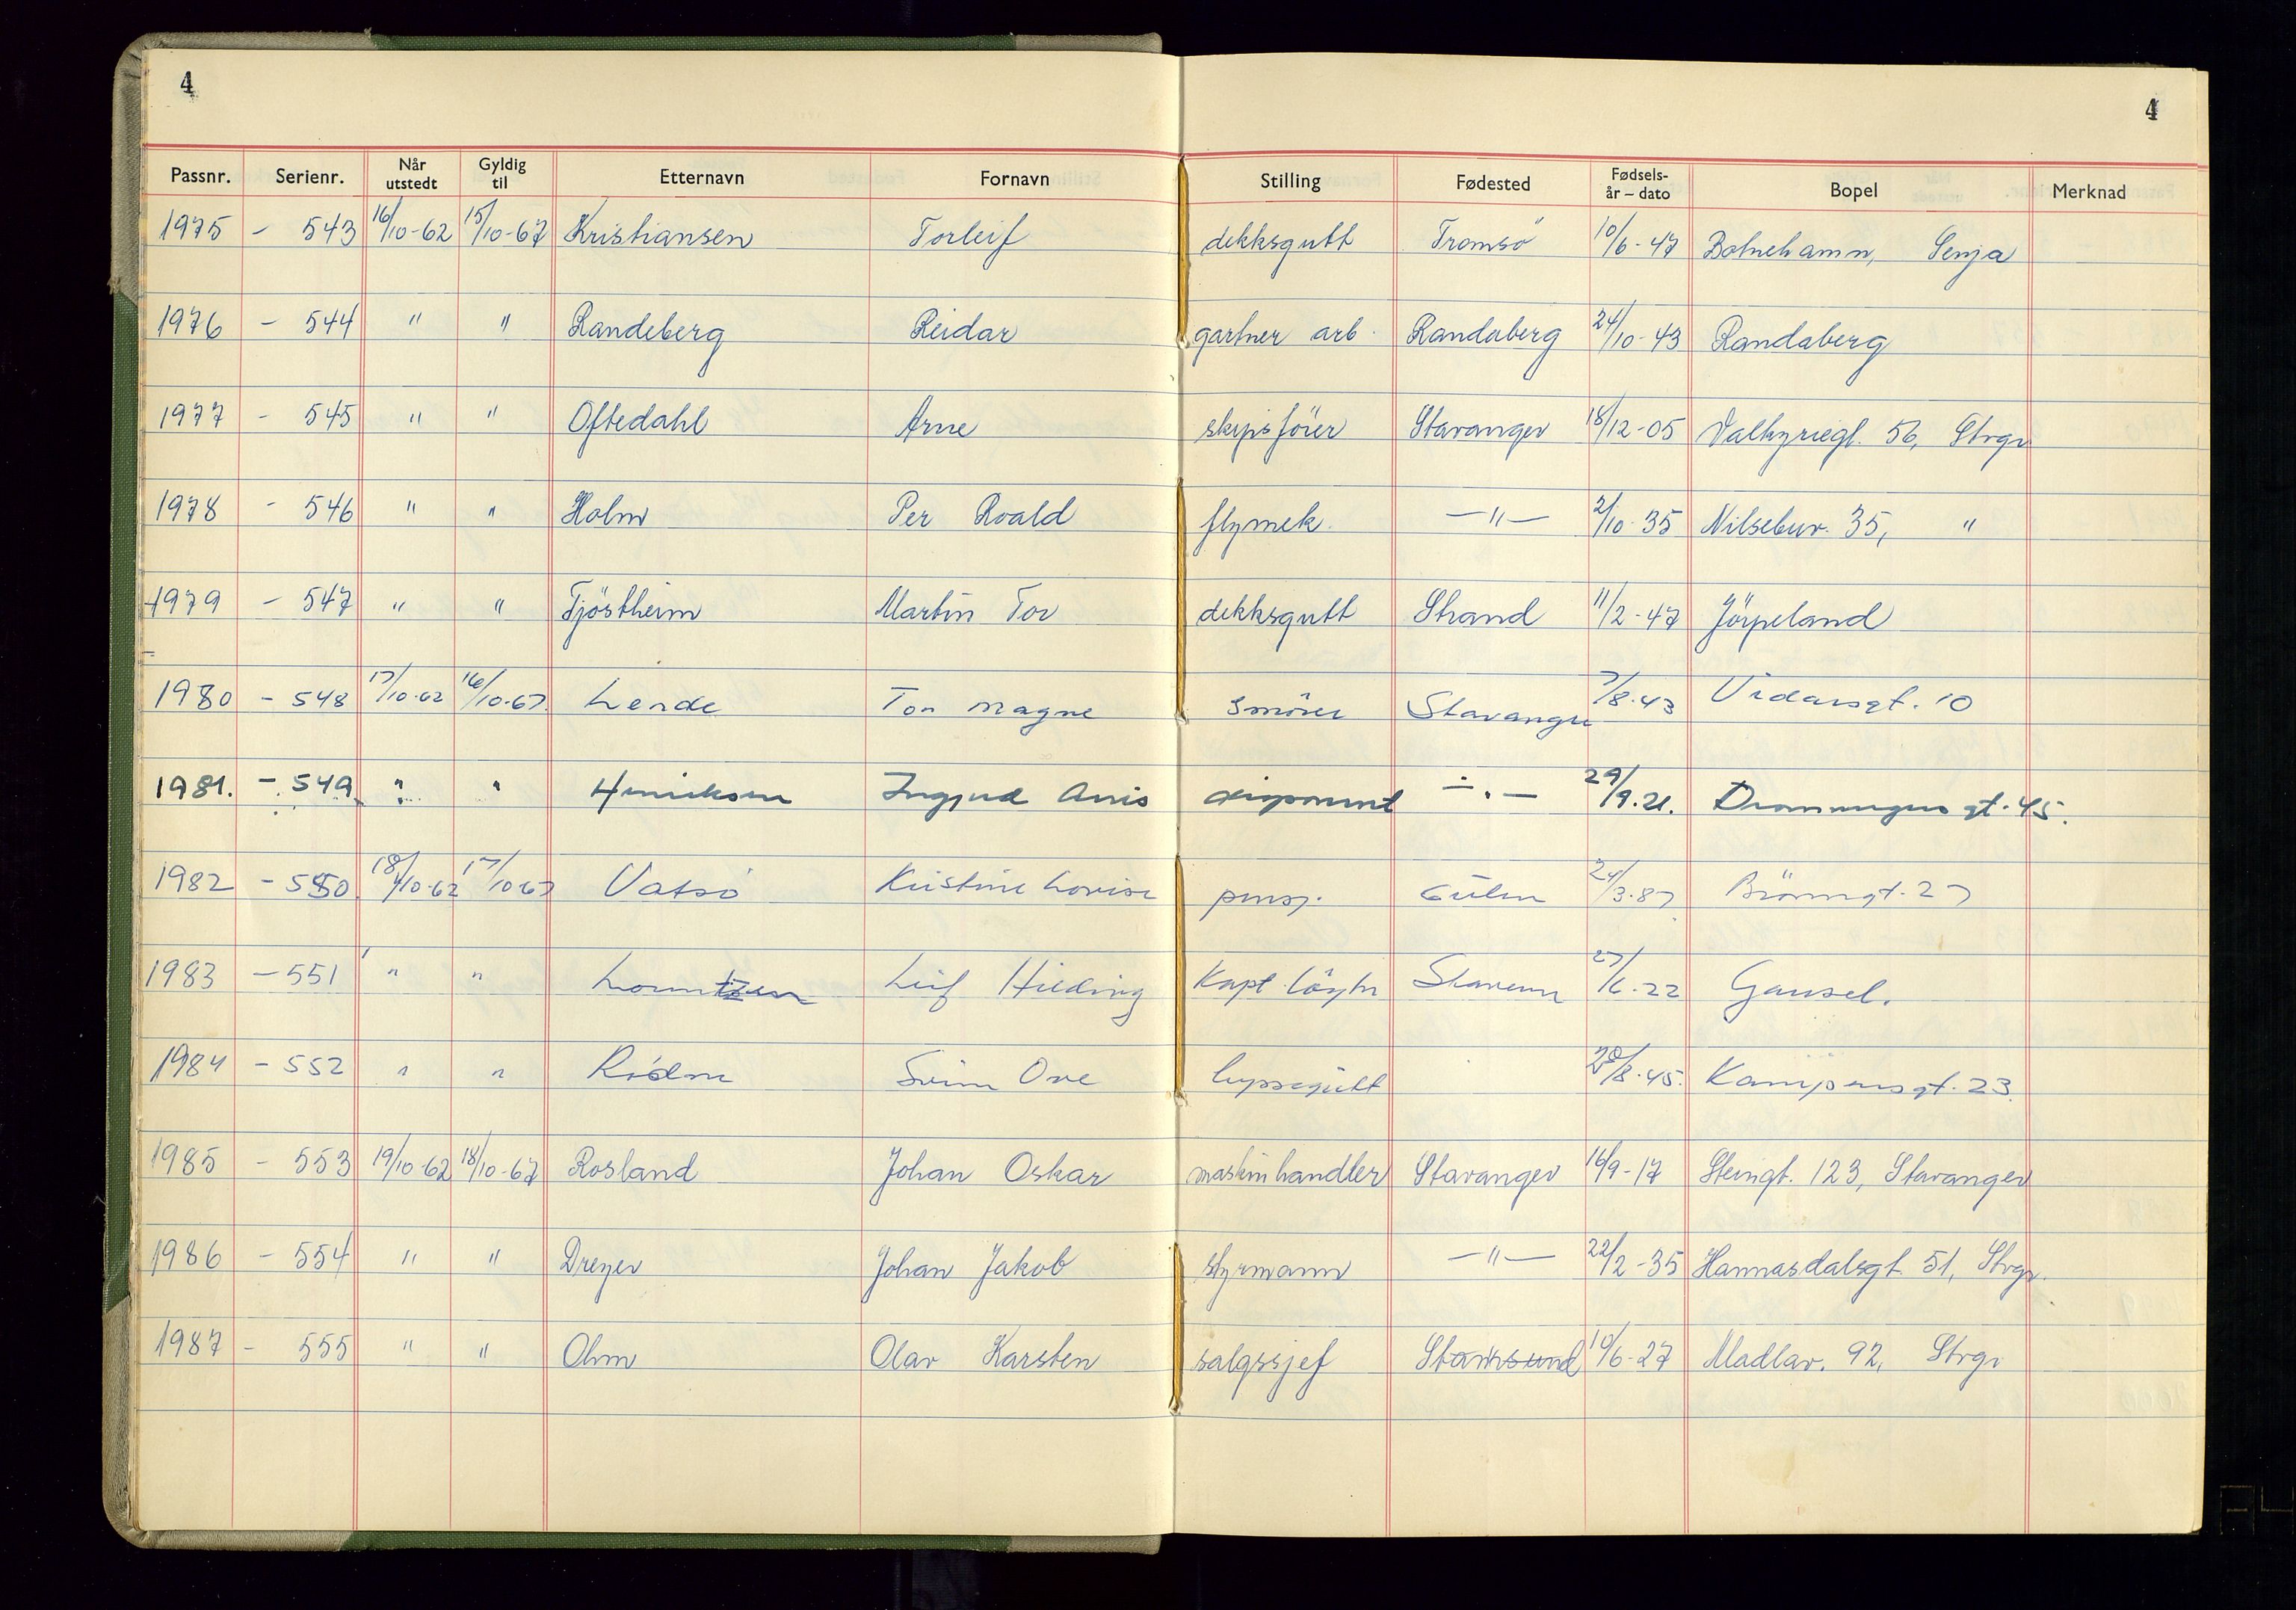 4
4
Passnr. Serienr. Når utstedt Gyldig til Etternavn Fornavn Stilling Fødested Fødsels- år – dato Bopel Merknad
1975 - 543 16/10-62 15/10-67 Kristiansen Torleif dekksgutt Tromsö 10/6-47 Botnehamn, Senja
1976 - 544 " " Randeberg Reidar gartner arb. Randaberg 24/10-43 Randaberg
1977 - 545 " " Oftedahl Arne skipsförer Stavanger 18/12-05 Valkyriegt. 56, Stvgr
1978 - 546 " " Holm Per Roald flymek. -"- 2/10-35 Nilsebuv. 35, "
1979 - 547 " " Tjöstheim Martin Tor dekksgutt Strand 11/2-47 Jörpeland
1980 - 548 17/10-62 16/10-67. Lende Tor Magne smörer Stavanger 7/8-43 Vidarsgt. 10
1981. - 549 " " Henriksen disponent -"- 29/9.21. Dronningensgt. 45.
1982 - 550. 18/10-62 17/10-67 Vatsö Kristine Lovise pensj. Gulen 24/3.87. Brönngt. 27
1983 - 551 " " Lorentzen Leif Hilding Kapt. löytn Stavern 27/6-22 Gausel.
1984 - 552 " " Svein Ove byssegutt 20/8.45. Kampensgt. 23.
1985 - 553 19/10-62 18/10-67 Rosland Johan Oskar maskinhandler Stavanger 16/9-17 Steingt. 123, Stavanger
1986 - 554 " " Dreyer Johan Jakob styrmann -"- 22/2-35 Hannasdalsgt. 51, Stvgr.
1987 - 555 " " Ohm Olav Karsten salgssjef Stamsund 10/6-27 Madlav. 92, Stvgr